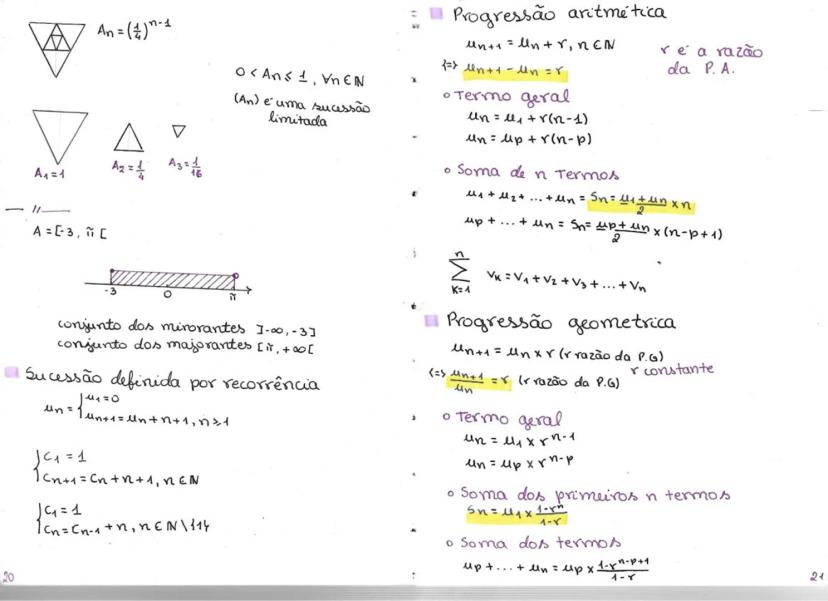 An = (1/4)^n-1
0 < An ≤ 1, ∀n ∈ ℕ
(An) é uma sucessão
limitada
A1=1 A2=1/4 A3=1/16
— // —
A = [-3, π [
-3 0 π
conjunto dos minorantes ]-∞, -3]
conjunto dos majorantes [π, +∞[
Sucessão definida por recorrência
un = { u1=0
un+1 = un + n+1, n≥1
{ C1 = 1
Cn+1 = Cn + n + 1, n ∈ ℕ
{ C1 = 1
Cn = Cn-1 + n, n ∈ ℕ \ {1}
20
Progressão aritmética
un+1 = un + r, n ∈ ℕ
r é a razão
da P.A.
(=> un+1 - un = r
Termo geral
un = u1 + r(n-1)
un = up + r(n-p)
Soma de n Termos
u1 + u2 + ... + un = Sn = u1+un/2 × n
up + ... + un = Sn = up+un/2 × (n-p+1)
n ∑ K=1 VK = V1 + V2 + V3 + ... + Vn
Progressão geometrica
un+1 = un × r (r razão da P.G)
(=> un+1/un = r (r razão da P.G) r constante
Termo geral
un = u1 × r^n-1
un = up × r^n-p
Soma dos primeiros n termos
Sn = u1 × 1-r^n/1-r
Soma dos termos
up + ... + un = up × 1-r^n-p+1/1-r
21